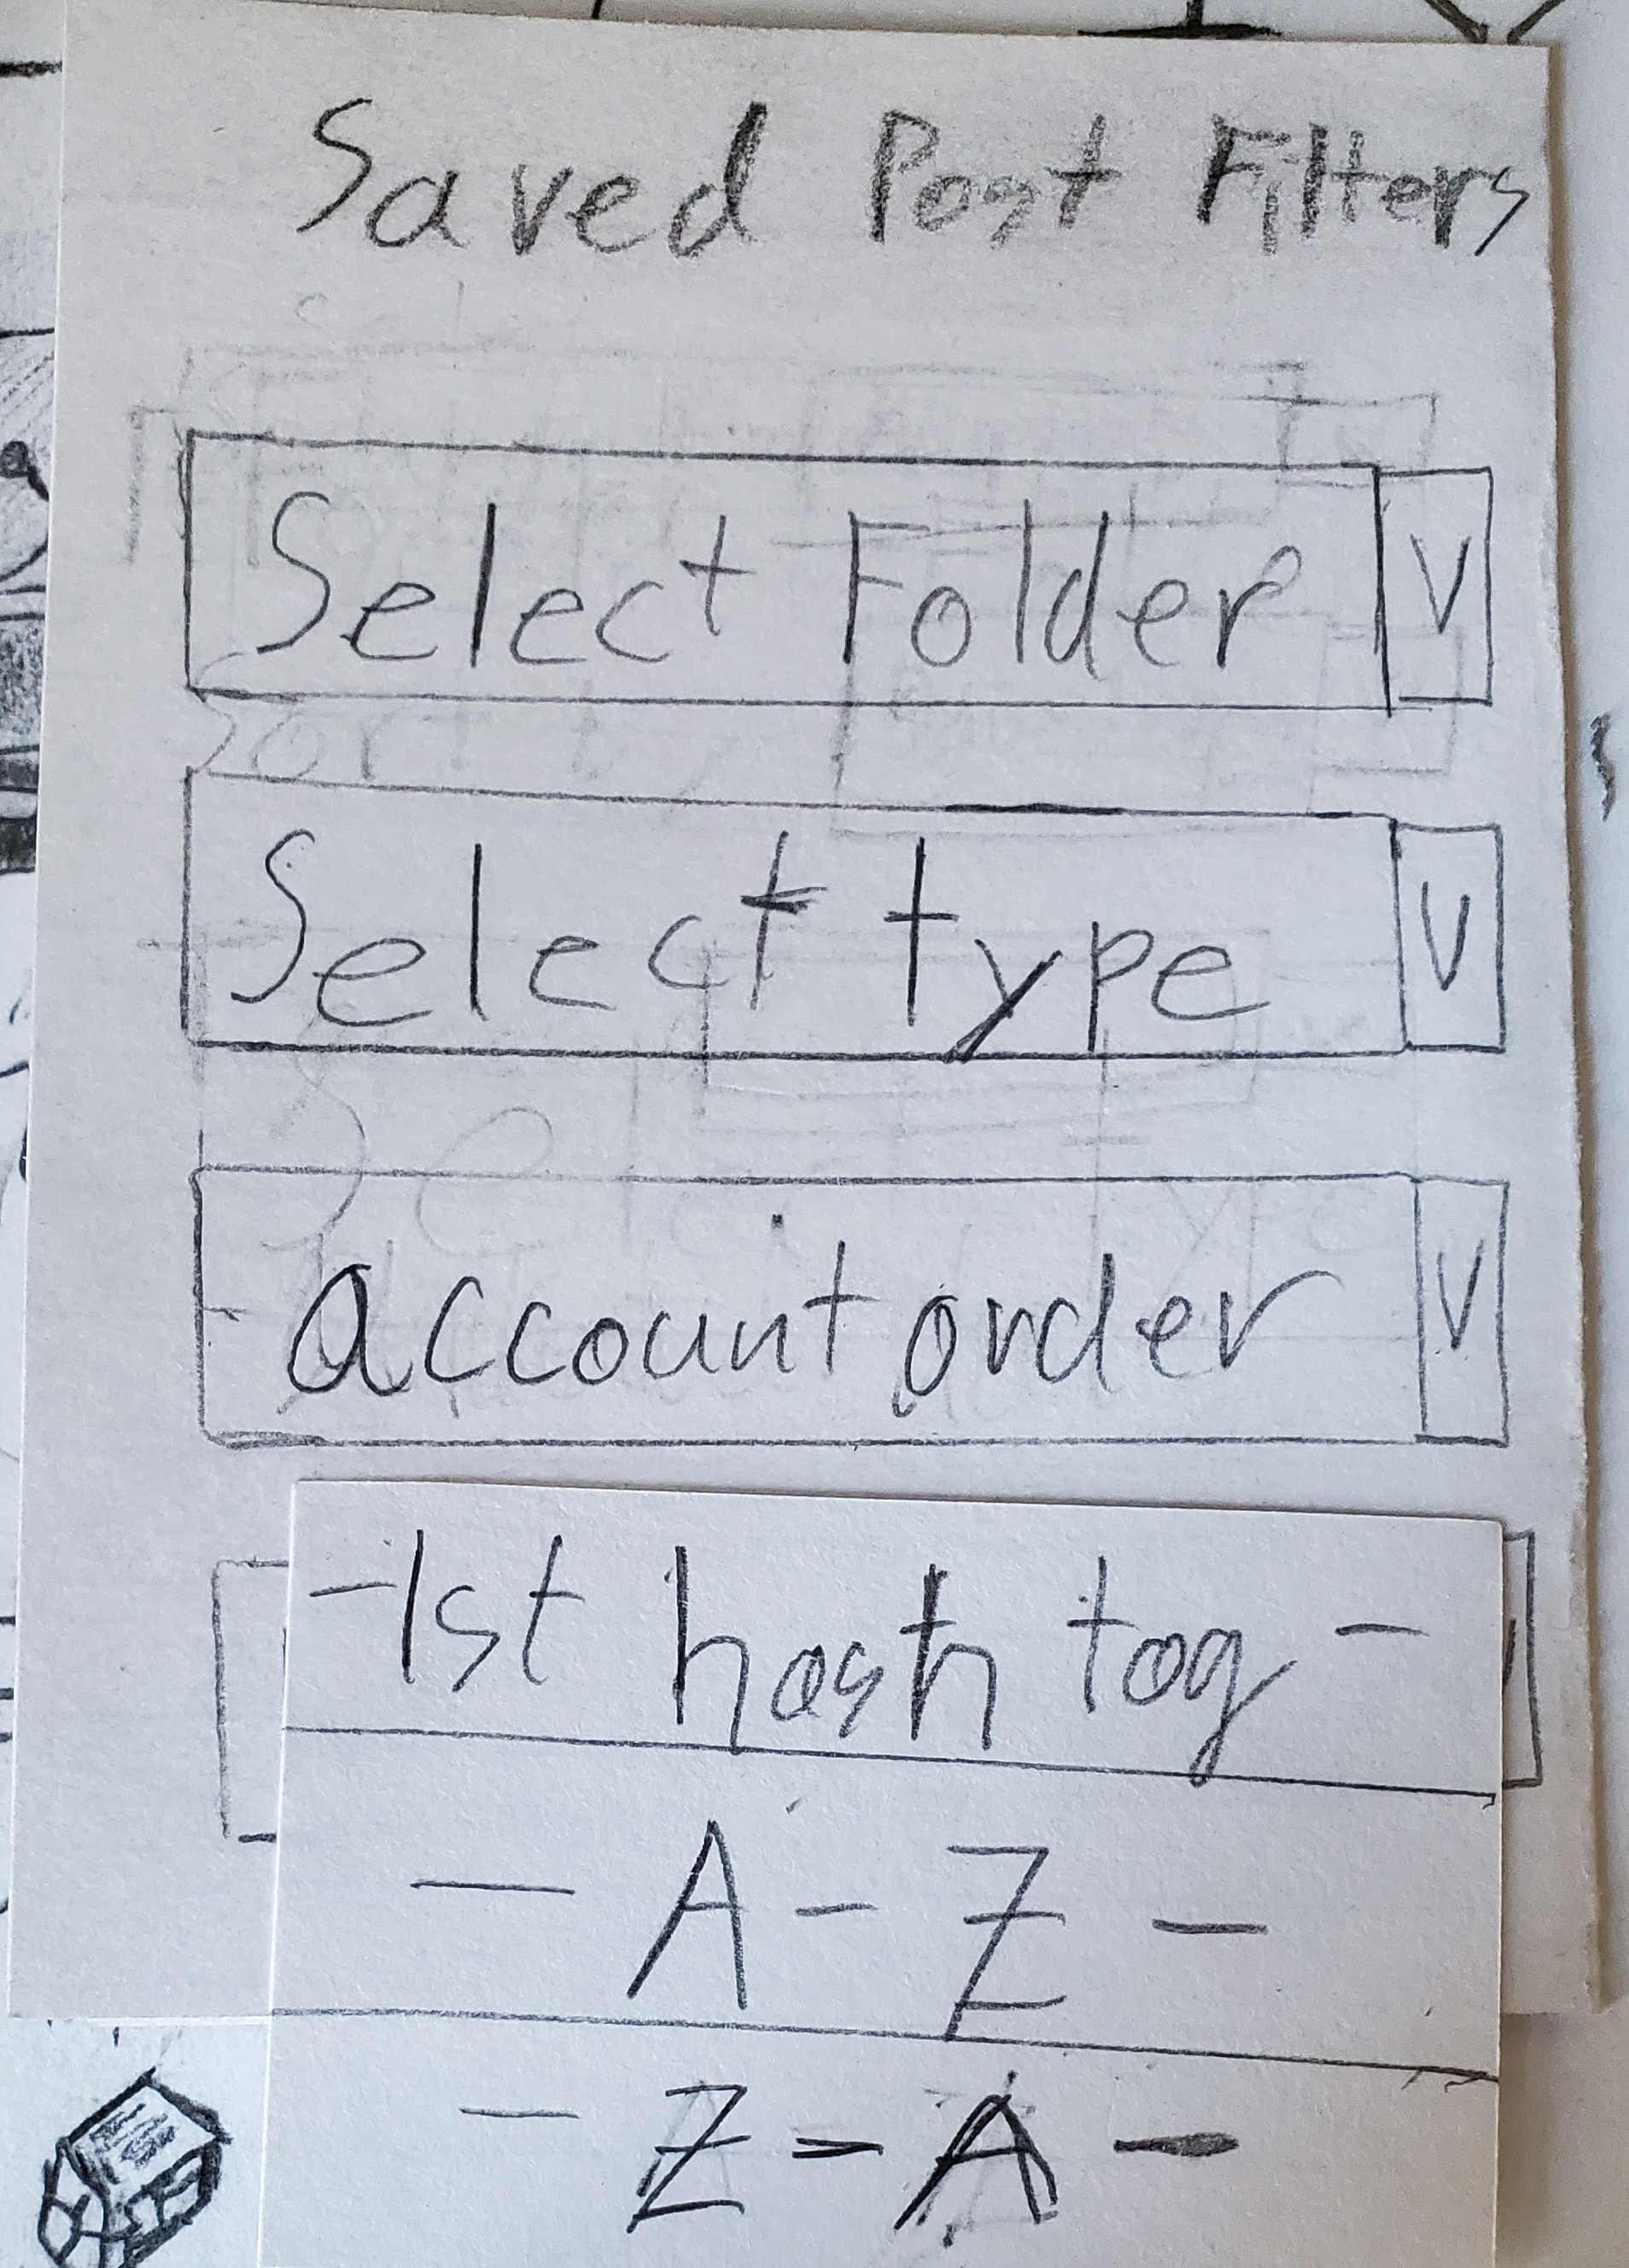 Saved Post Filters
Select Folder V
Select type V
account order V
-1st hash tag -
- A - Z -
- Z - A -